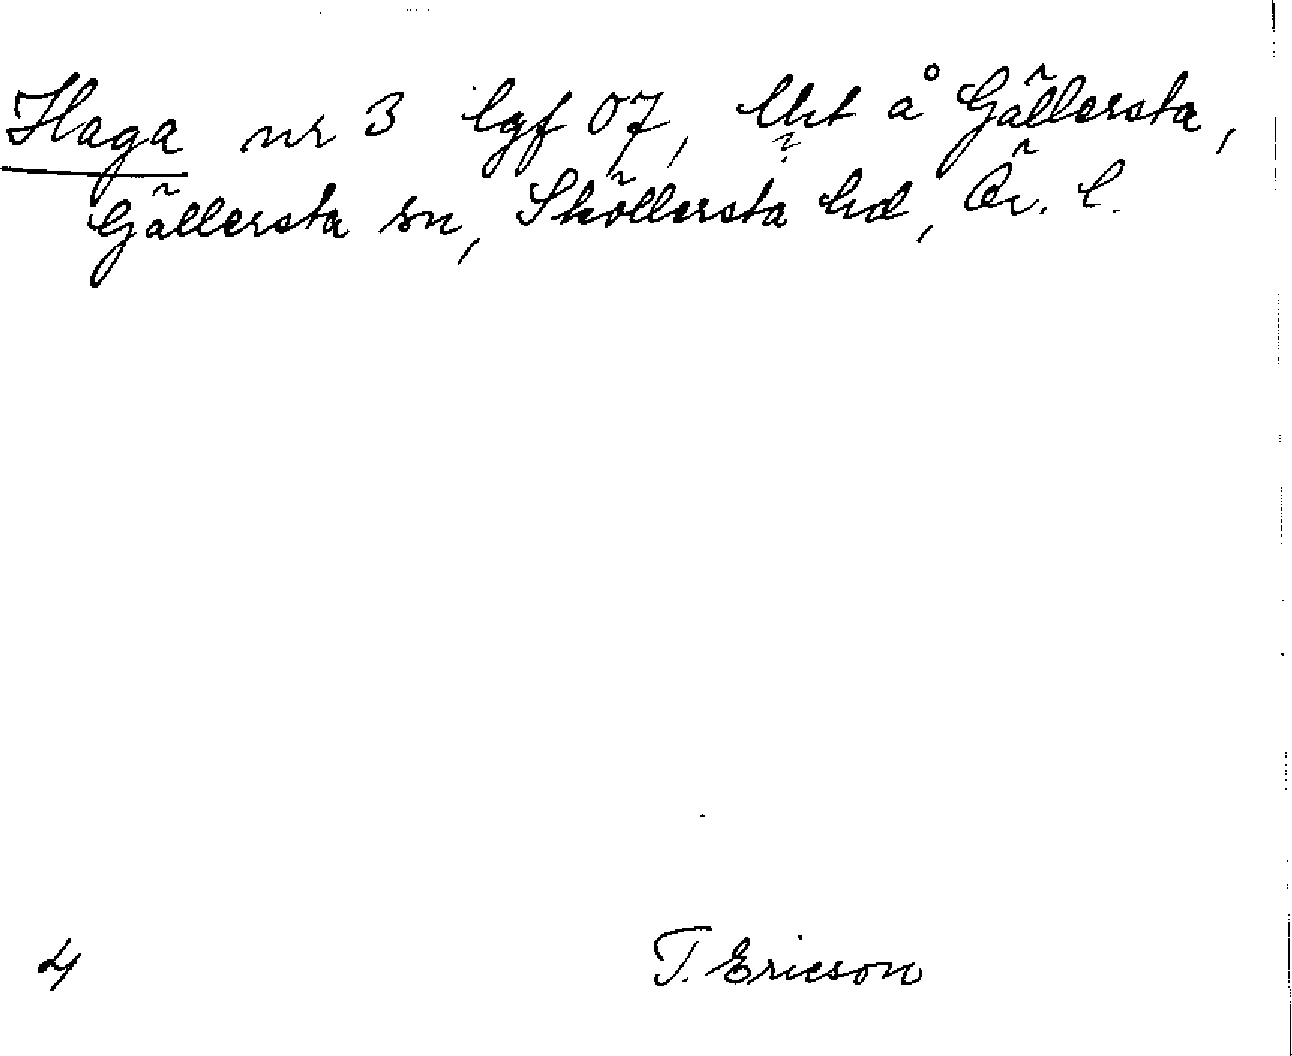 Haga nr 3 lgf 07, lht å Gällersta,
?
Gällersta sn, Sköllersta hd, Ör. l.
4 T. Ericson